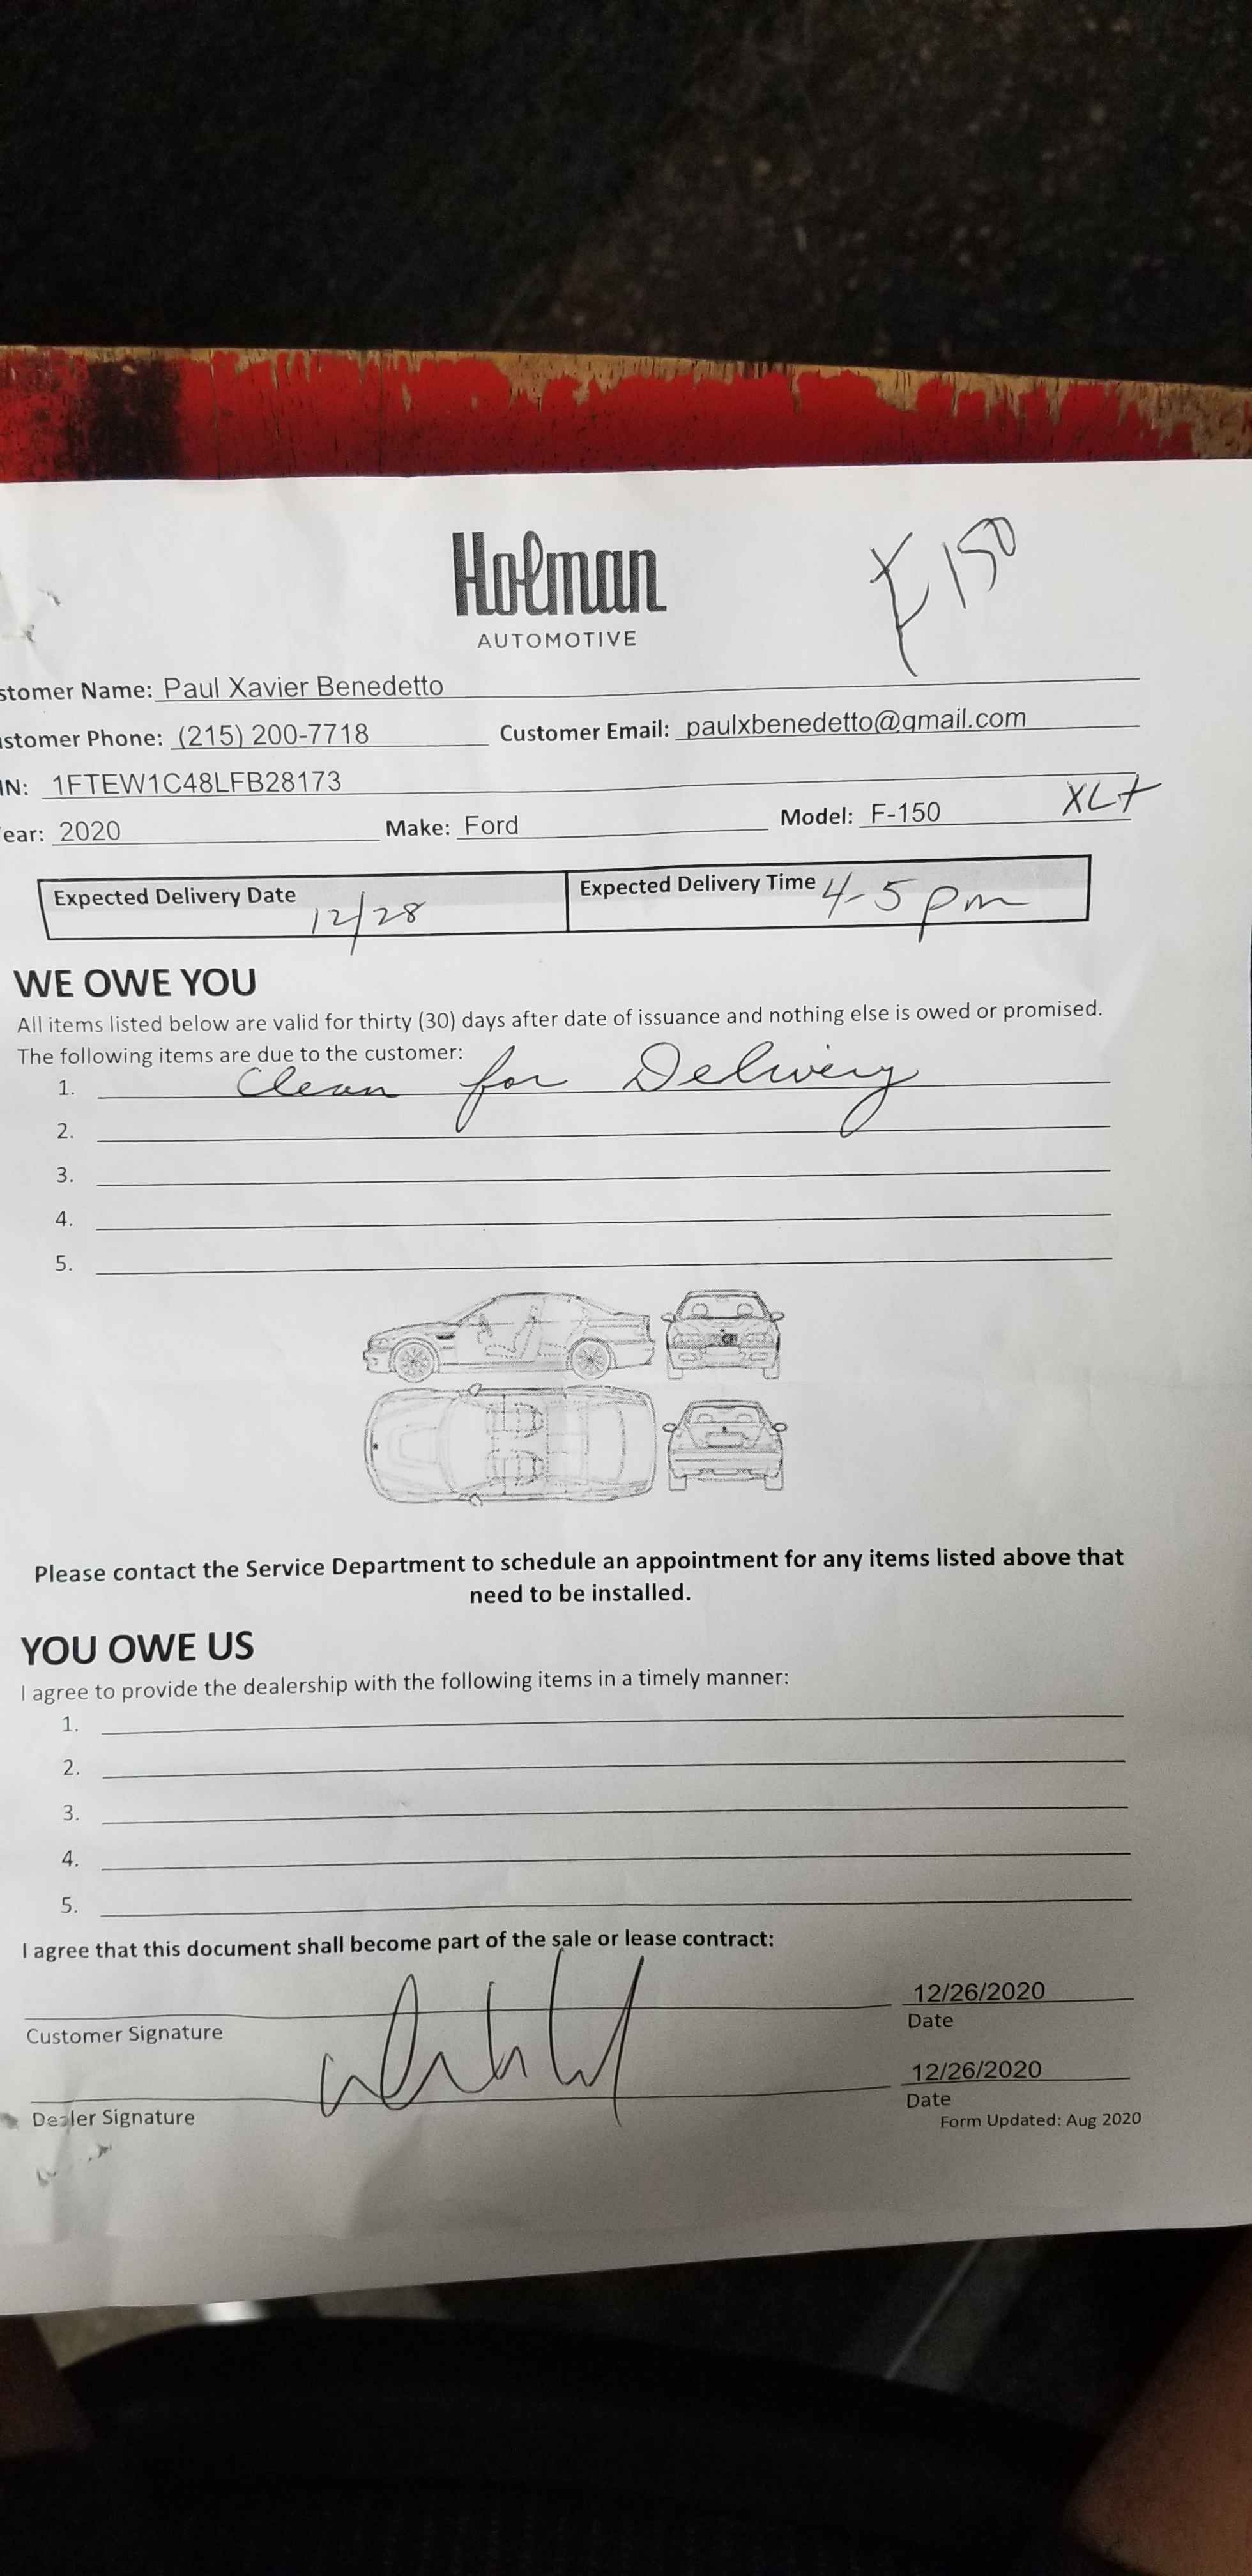 Holman
AUTOMOTIVE
F150
stomer Name: Paul Xavier Benedetto
stomer Phone: (215) 200-7718 Customer Email: paulxbenedetto@gmail.com
IN: 1FTEW1C48LFB28173
ear: 2020 Make: Ford Model: F-150 XLT
Expected Delivery Date 12/28 Expected Delivery Time 4-5 pm
WE OWE YOU
All items listed below are valid for thirty (30) days after date of issuance and nothing else is owed or promised.
The following items are due to the customer:
1. Clean for Delivery
2.
3.
4.
5.
Please contact the Service Department to schedule an appointment for any items listed above that
need to be installed.
YOU OWE US
I agree to provide the dealership with the following items in a timely manner:
1.
2.
3.
4.
5.
I agree that this document shall become part of the sale or lease contract:
12/26/2020
Customer Signature Date
12/26/2020
Dealer Signature Date
Form Updated: Aug 2020